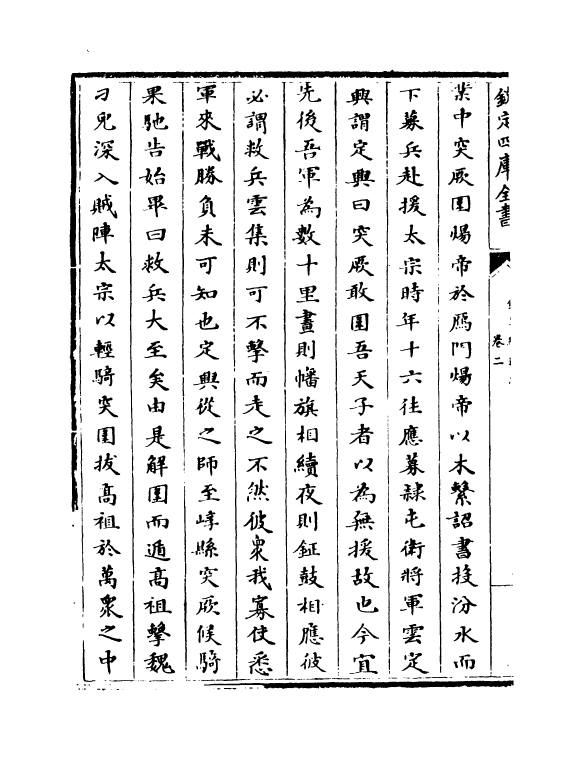 欽定四庫全書
卷二
業中突厥圍煬帝於鴈門煬帝以木繫詔書投汾水而
下募兵赴援太宗時年十六往應募隷屯衛將軍雲定
興謂定興曰突厥敢圍吾天子者以為無援故也今宜
先後吾軍為數十里晝則幡旗相續夜則鉦鼓相應彼
必謂救兵雲集則可不擊而走之不然彼衆我寡使悉
軍來戰勝負未可知也定興從之師至崞縣突厥候騎
果馳告始畢曰救兵大至矣由是解圍而遁高祖擊魏
刁兒深入賊陣太宗以輕騎突圍拔高祖於萬衆之中